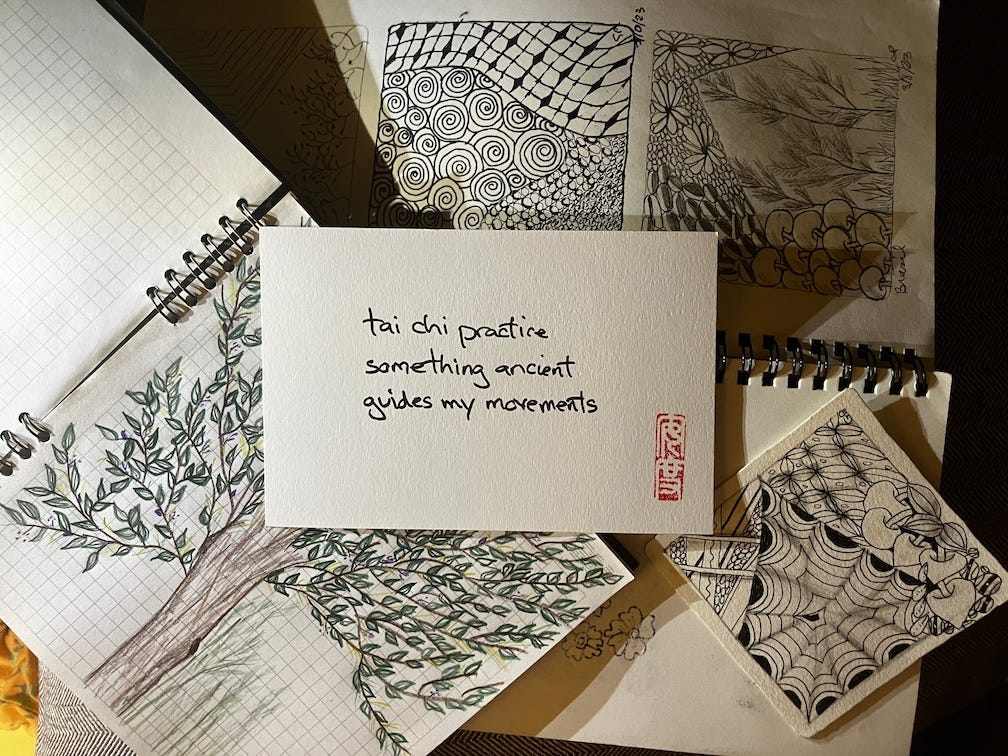 tai chi practice
something ancient
guides my movements